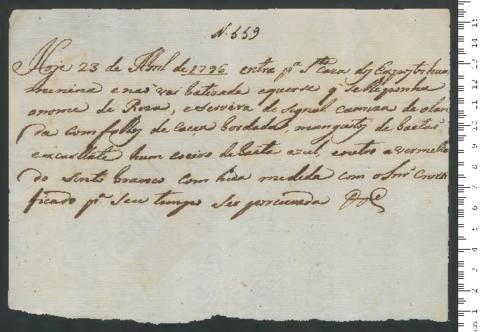 N. 559
Hoje 23 de Abril de 1796 entra pª Stª Caza dos Expostos hua
menina e nao vai batizada e quer se q̃ se lhe ponha
o nome de Roza, e servira de signal camiza de olan
da com folhos de caça bordada, manguitos de baeta
excarllate hum coeiro de baeta azul, e outro a vermelha
do sinto branco com hua medida com o Snr Cruci
ficado pª Seu tempo ser porcurada